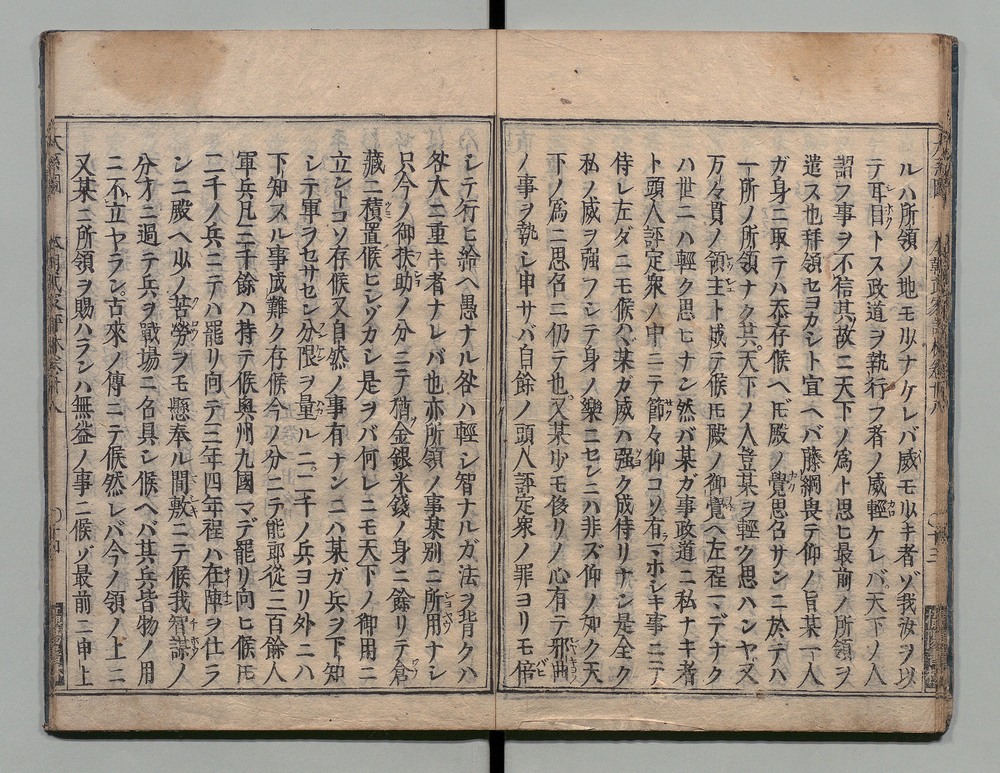 ルハ所領ノ地モ少ナケレバ威モ少キ者ゾ我汝ヲ以
テ耳目トス政道ヲ執行フ者ノ威輕ケレバ天下ノ人
謟フ事ヲ不信其故ニ天下ノ為ト思ヒ最前ノ所領ヲ
遣ス也拜領セヨカシト宣ヘバ藤綱畏テ仰ノ旨某一人
ガ身ニ取テハ忝存候ヘドモ殿ノ覺思召サンニ於テハ
一所ノ所領ナク共天下ノ人豈某ヲ輕ク思ハンヤ又
万々貫ノ領主ト成テ候トモ殿ノ御覺ヘ左程マデナク
ハ世ニハ輕ク思ヒナン然バ某ガ事政道ニ私ナキ者
ト頭人評定衆ノ中ニテ節々仰コソ有マホシキ事ニテ
侍レ左ダニモ候ハヾ某ガ威ハ强ク成侍リナン是全ク
私ノ威ヲ强フシテ身ノ樂ニセンニハ非ズ仰ノ如ク天
下ノ為ニ思召ニ仍テ也又某少モ侈リノ心有テ邪曲
ノ事ヲ執シ申サバ自餘ノ頭人評定衆ノ罪ヨリモ倍
シテ行ヒ給ヘ愚ナル咎ハ輕シ智ナルガ法ヲ背クハ
咎大ニ重キ者ナレバ也亦所領ノ事某別ニ所用ナシ
只今ノ御扶助ノ分ニテ稍金銀米錢ノ身ニ餘リテ倉
藏ニ積置候ヒシゾカシ是ヲバ何レニモ天下ノ御用ニ
立ントコソ存候又自然ノ事有ナンニハ某ガ兵ヲ下知
シテ軍ヲセサセン分限ヲ量ルニ二千ノ兵ヨリ外ニハ
下知スル事成難ク存候今ノ分ニテ能郎從三百餘人
軍兵凡三千餘ハ持テ候奥州九國マデ罷リ向ヒ候トモ
二千ノ兵ニテハ罷リ向テ三年四年程ハ在陣ヲ仕ラ
ンニ殿ヘ少ノ苦勞ヲモ懸奉ル間敷ニテ候我智謀ノ
分才ニ過テ兵ヲ戰場ニ召具シ候ヘバ其兵皆物ノ用
ニ不立ヤラン古來ノ傳ニテ候然レバ今ノ領ノ上ニ
又某ニ所領ヲ賜ハランハ無益ノ事ニ候ゾ最前ニ申上